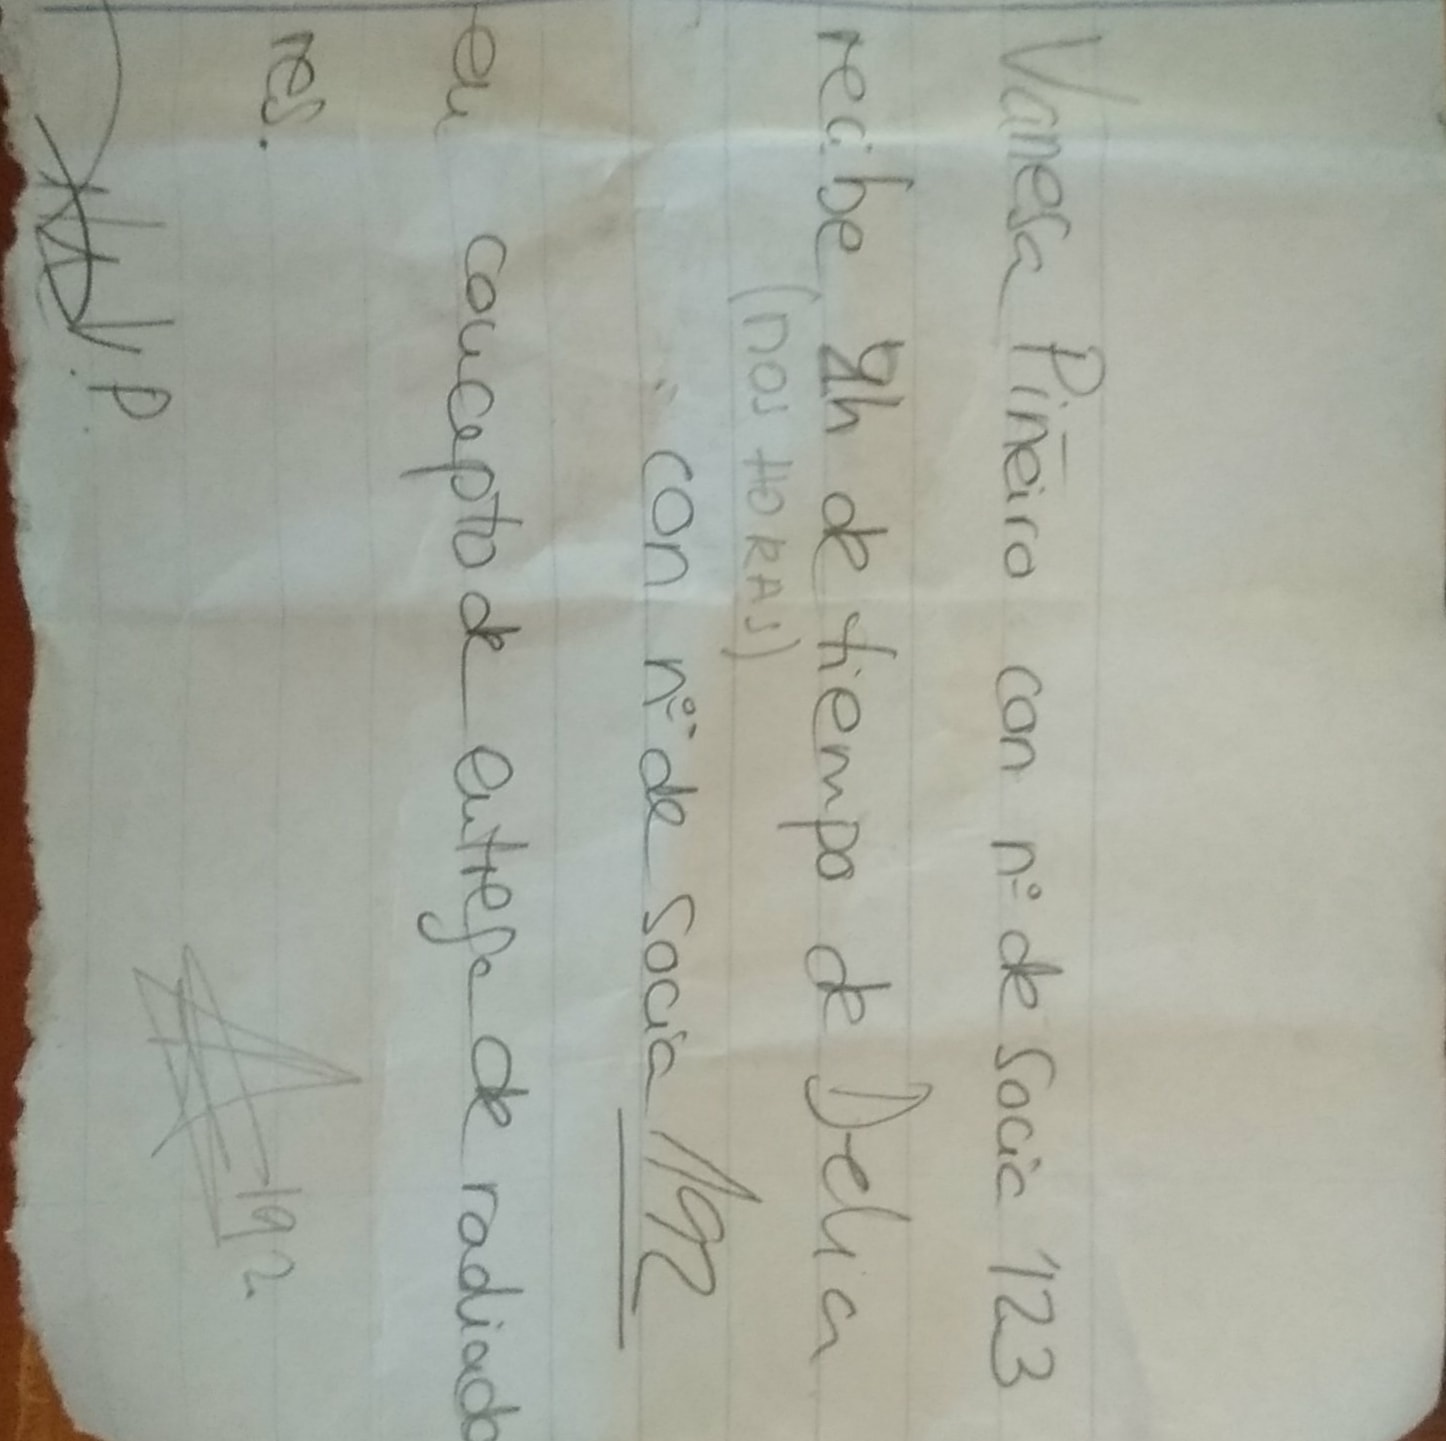 Vanesa Piñeiro con nº de socia 123
recibe 2h de tiempo de Delia
(DOS HORAS)
con nº de socia 192
en concepto de entrega de radiado
res.
192
V.P.